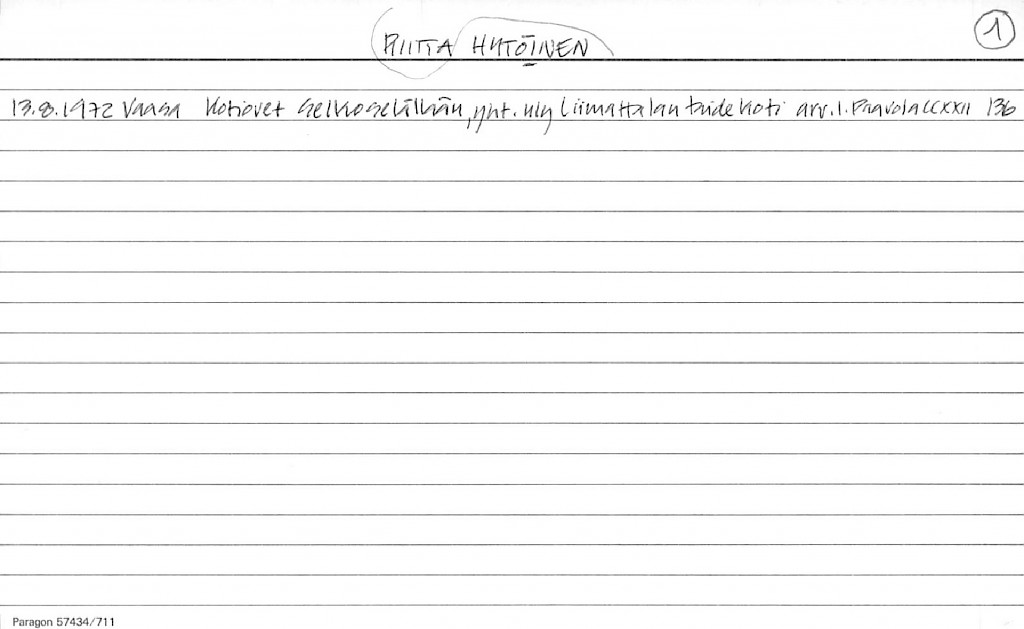 PIITTA HYTÖINEN
1
13.8.1972 Vaasa Kotiovet selkoselällään, yht. Liimattalan taidekoti arv. I. Paavola CCXXII 136
Paragon 57434/711